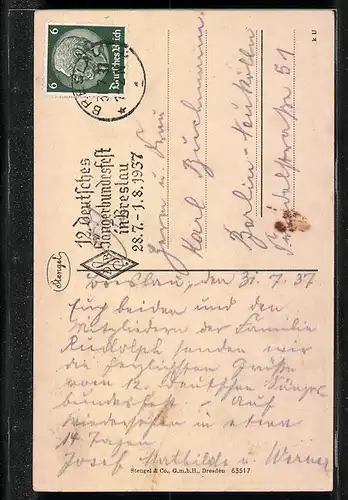 6
Deutsches Reich
BRESLAU
12. Deutsches
Sängerbundesfest
in Breslau
28.7. - 1.8.1937
Herrn u. Frau
Karl Buchmann
Berlin - Neukölln
51
k U
Stengel
Breslau, den 31.7.37
Euch beiden und den
Mitgliedern der Familie
Rudolph senden wir
die herzlichsten Grüße
vom 12. Deutschen Sänger-
bundesfest. Auf
Wiedersehen in etwa
14 Tagen
Josef Mathilde u. Werner
Stengel & Co., G.m.b.H., Dresden 63517